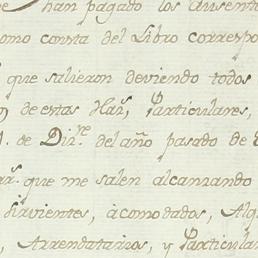 han pagado los Ausent
como consta del Libro correspo
que salieron deviendo todos
de estas Haz.s, Particulares,
de Diz.re del año pasado de
que me salen alcanzando
Sirvientes, acomodados, Alq
Arrendatarios, y Particular